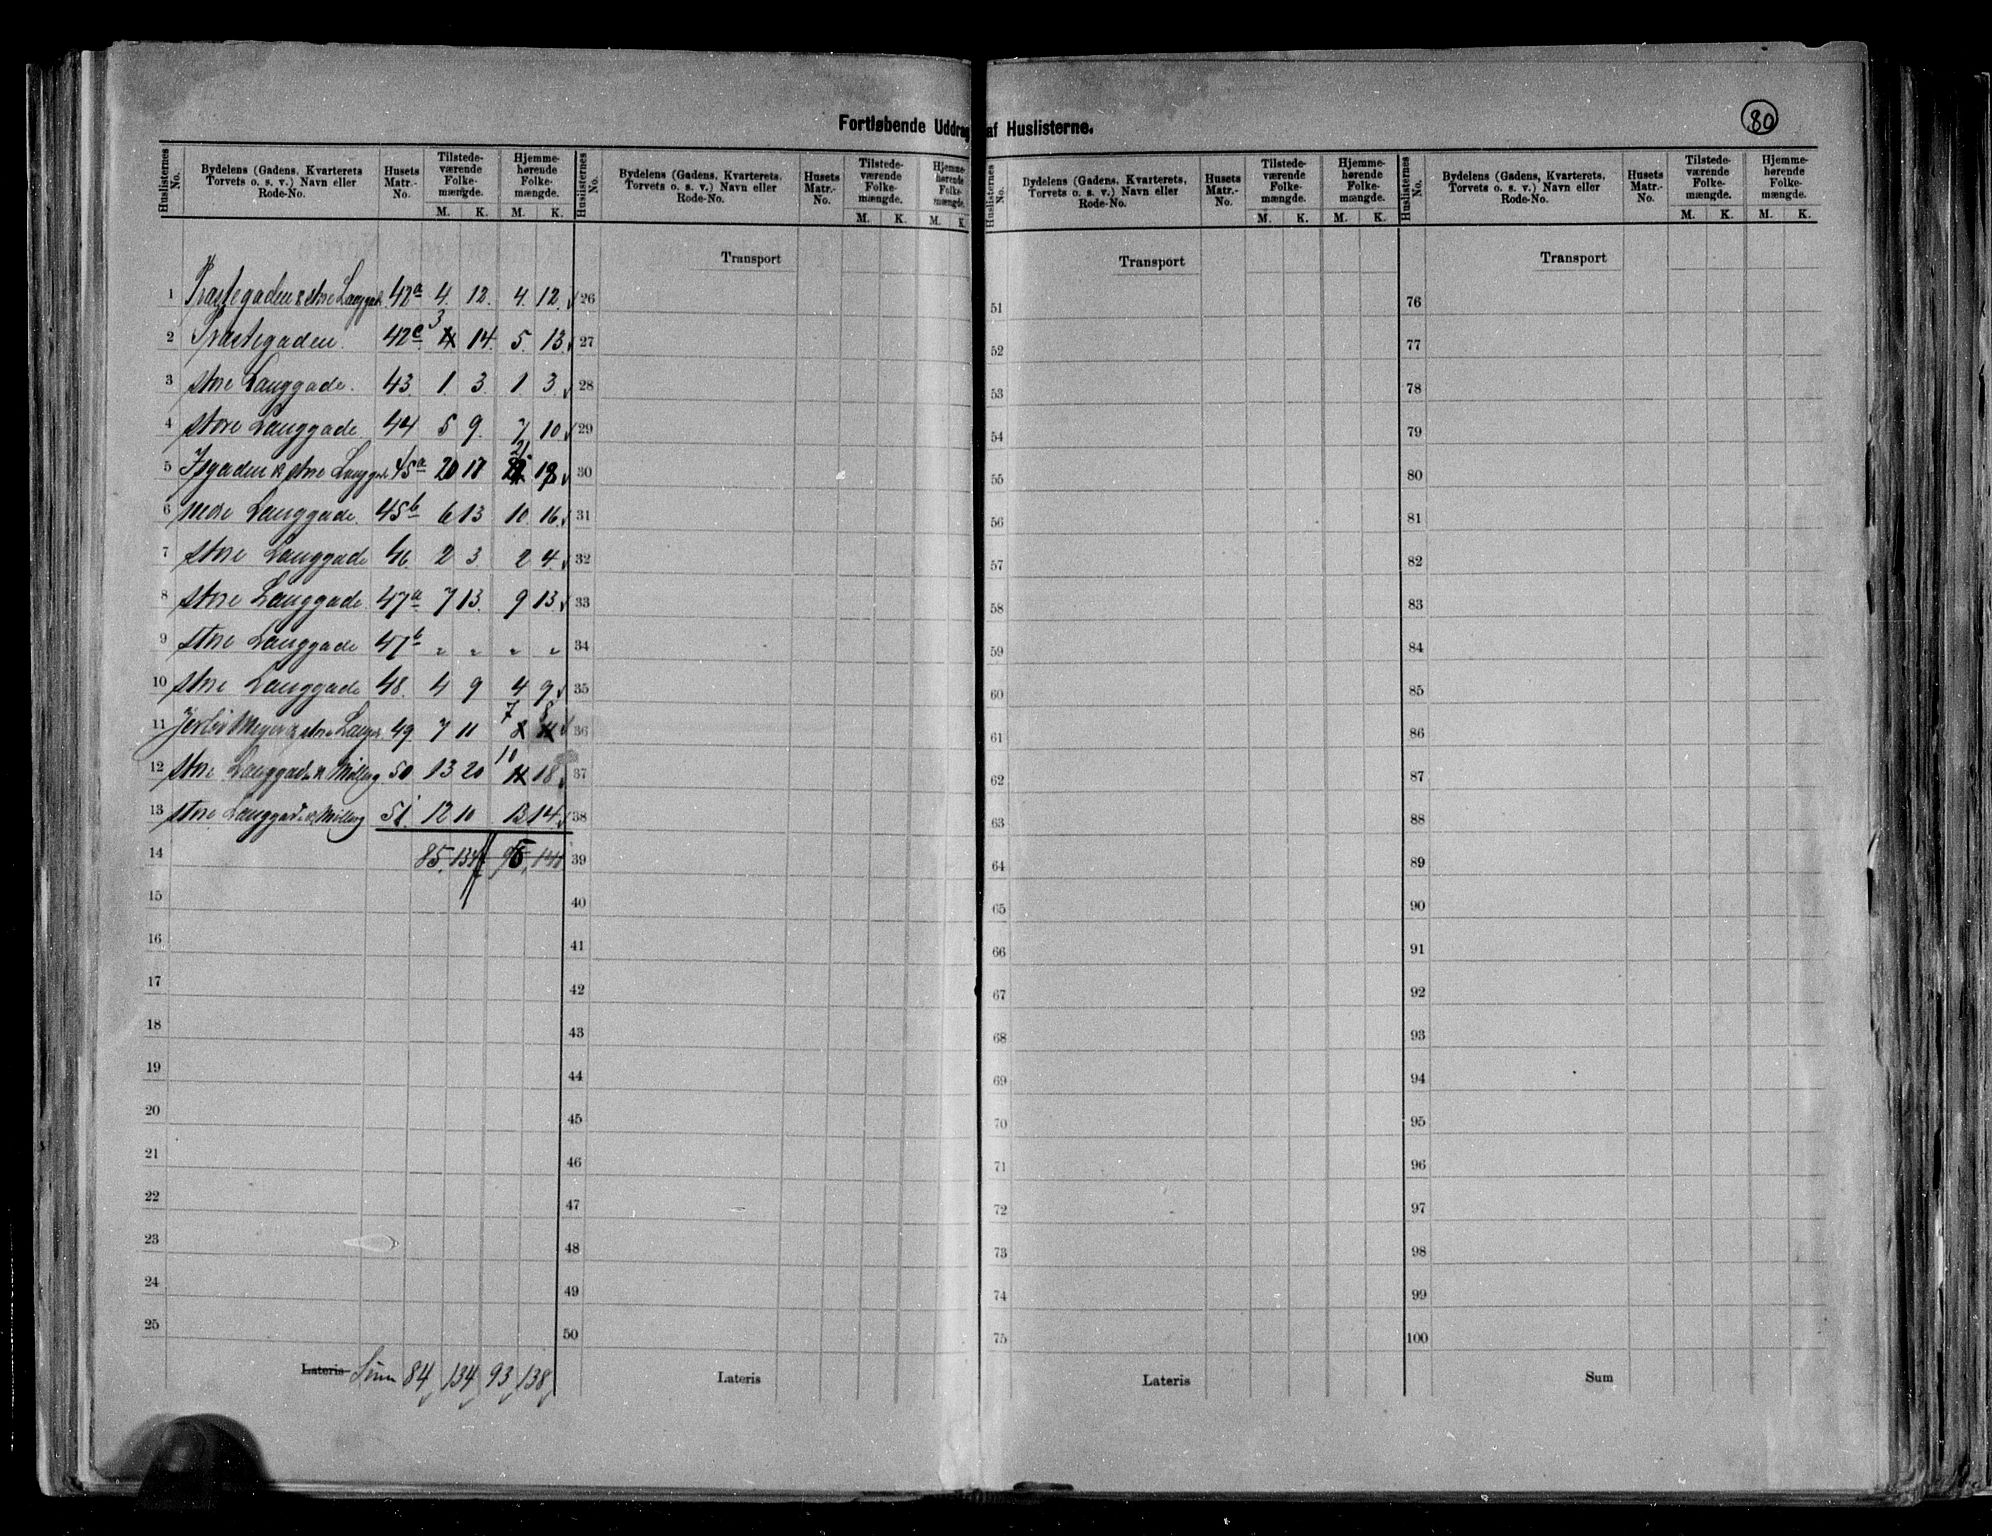 80
Fortløbende Uddrag af Huslisterne.
Huslisternes No. Bydelens (Gadens, Kvarterets, Torvets o. s. v.) Navn eller Rode-No. Husets Matr.-No. Tilstede-værende Folke-mængde. M. K. Hjemme-hørende Folke-mængde. M. K.
Huslisternes No. Bydelens (Gadens, Kvarterets, Torvets o. s. v.) Navn eller Rode-No. Husets Matr.-No. Tilstede-værende Folke-mængde. M. K. Hjemme-hørende Folke-mængde. M. K.
Huslisternes No. Bydelens (Gadens, Kvarterets, Torvets o. s. v.) Navn eller Rode-No. Husets Matr.-No. Tilstede-værende Folke-mængde. M. K. Hjemme-hørende Folke-mængde. M. K.
Huslisternes No. Bydelens (Gadens, Kvarterets, Torvets o. s. v.) Navn eller Rode-No. Husets Matr.-No. Tilstede-værende Folke-mængde. M. K. Hjemme-hørende Folke-mængde. M. K.
Transport Transport Transport
1 Præstegaden & store Langgade 42a 4. 12. 4. 12. 26 51 76
2 Præstegaden. 42c 3 4 14. 5. 13. 27 52 77
3 store Langgade. 43. 1. 3. 1. 3. 28 53 78
4 store Langgade 44 5 9. 7 10 29 54 79
5 store 45a 20 17 21 30 55 80
6 Langgade. 45b 6 13 10. 16. 31 56 81
7 store Langgade 46. 2 3. 2 4. 32 57 82
8 store Langgade. 47a 7 13. 9 13. 33 58 83
9 store Langgade 47b " " " " 34 59 84
10 store Langgade 48. 4 9 4 9. 35 60 85
11 store 49 7 11 7 8 8 11 36 61 86
12 store Langgade 50 13 20 10 11 18 37 62 87
13 store Langgade 51. 12 10 13 14. 38 63 88
14 85. 134 95. 39 64 89
15 40 65 90
16 41 66 91
17 42 67 92
18 43 68 93
19 44 69 94
20 45 70 95
21 46 71 96
22 47 72 97
23 48 73 98
24 49 74 99
25 50 75 100
Lateris Sum 84 134 93 138 Lateris Lateris Sum